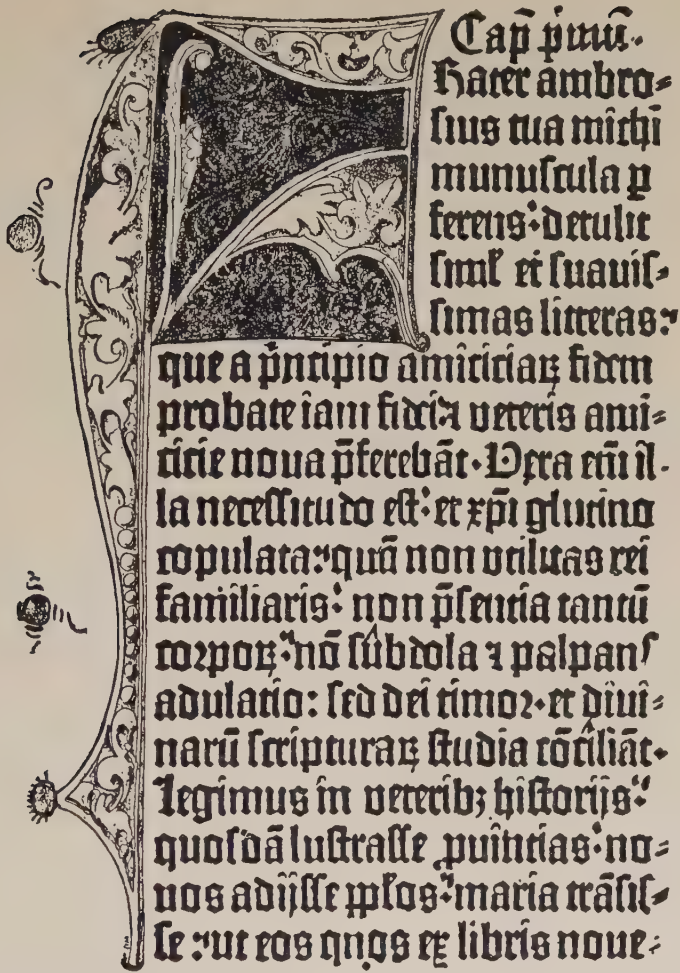 Cap̄ p̄imū·
Frater ambro⸗
ſius tua michi
munuſcula ꝑ
ferens·detulit
ſimĺ et ſuauiſ⸗
ſimas litteras:
que a p̄ncipio amiciciaꝝ fidem
probate iam fidei ⁊ veteris ami⸗
cicie noua p̄ferebāt·Vera em̄ il·
la neceſſitudo eſt·et xp̄i glutino
copulata:quā non vtilitas rei
familiaris·non p̄ſentia tantū
corpoꝝ·nō ſubdola ⁊ palpanſ
adulatio: ſed dei timor·et diui⸗
narū ſcripturaꝝ ſtudia cōciliāt·
legimus in veteribꝫ hiſtorijs·
quoſdā luſtraſſe ꝓuīntias·no⸗
uos adijſſe pp̄los·maria trāſiſ⸗
ſe:ut eos quos ex libris noue⸗